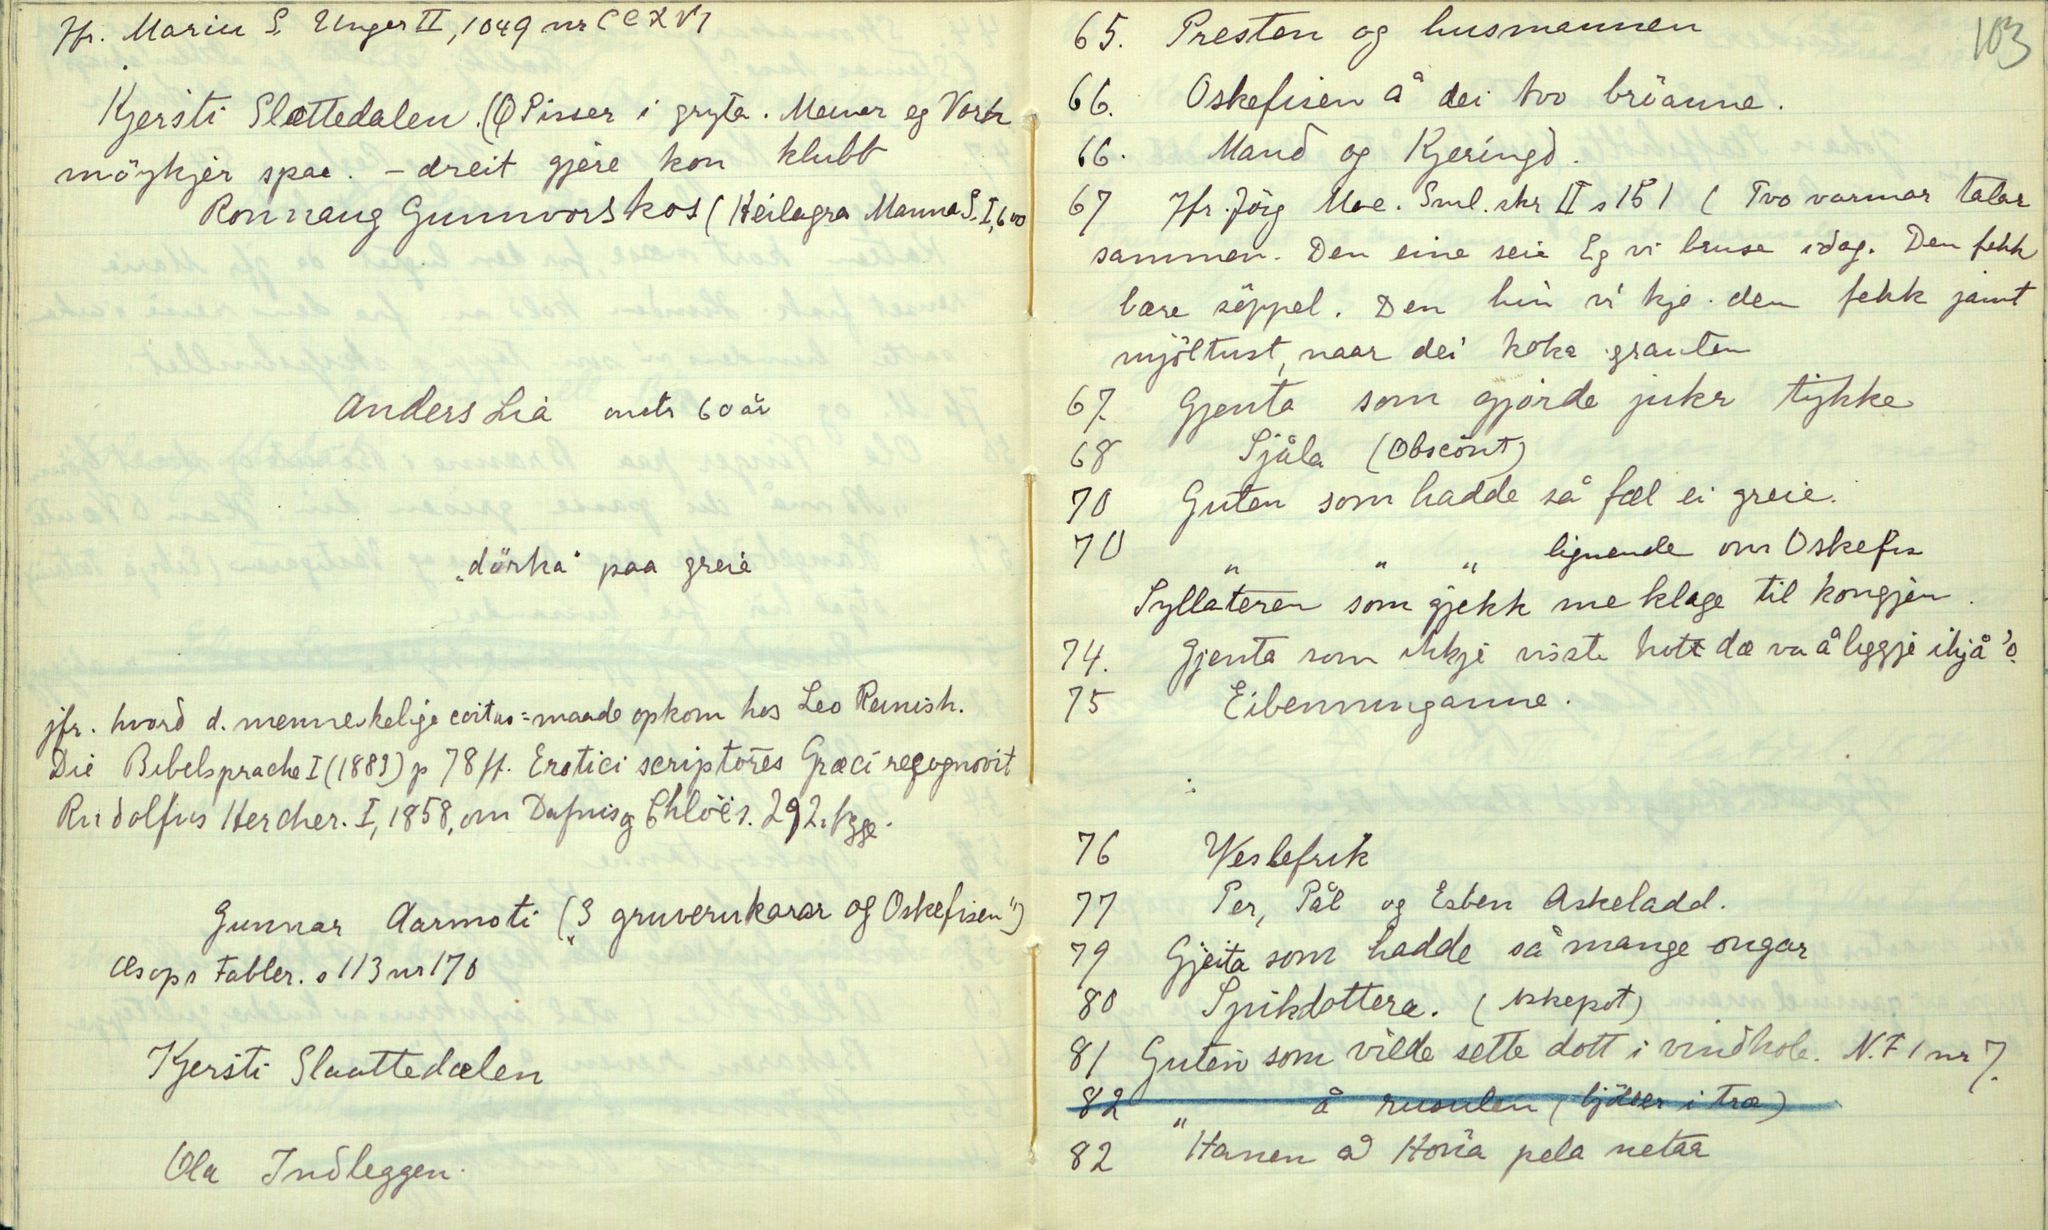 Jfr. Mariu S. Unger II, 1049 nr CCXVI
Kjersti Slåttedalen. Pisser i gryta. Meiner eg
møykjer spae. - dreit gjere kon klubb
Ronnaug Gunnvorskos (Heilagra Manna S. I, 600
Anders Lia omtr 60 år
"dörka" paa greie
jfr. hvord d. menneskelige coitus=maade opkom hos Leo Reinish.
Die Bibelsprache I (1883) p 78 ff. Erotici scriptores Græci recognovit
Rudolfus Hercher. I, 1858, om Dafnis og Chloë s. 292. fgge.
Gunnar Aarmoti ("3 gruverukarar og Oskefisen")
Æsops Fabler. s 113 nr 170
Kjersti Slaattedalen
Ola Indleggen.
103
65. Presten og husmannen
66. Oskefisen å dei tvo brörne.
66. Mand og Kjeringd.
67 Jfr. Jörg Moe. Sml. skr II s 151 ( Tvo varmar talar
sammen. Den eine seie Eg vi bruse idag. Den fekk
bare söppel. Den hin vi kje. den fekk jamt
mjöltust, naar dei koka grauten
67. Gjenta som gjorde jukr tykke
68 Sjåla (Obscönt)
70 Guten som hadde så fæl ei greie.
70 " " " lignende om Oskefis
Syllateren som gjekk me klage til kongjen.
74. Gjenta som ikkje visste hott dæ va å liggje ihjå 'o.
75 Eibenninganne.
76 Veslefrik
77 Per, Pål og Esben Askeladd.
79 Gjeita som hadde så mange ongar
80 Spikdottera. (Askepot)
81 Guten som vilde sette dott i vindhole. N.F 1 nr 7.
82 " å rusulen (bjöller i træ)
82 Hanen å Höna pela netar